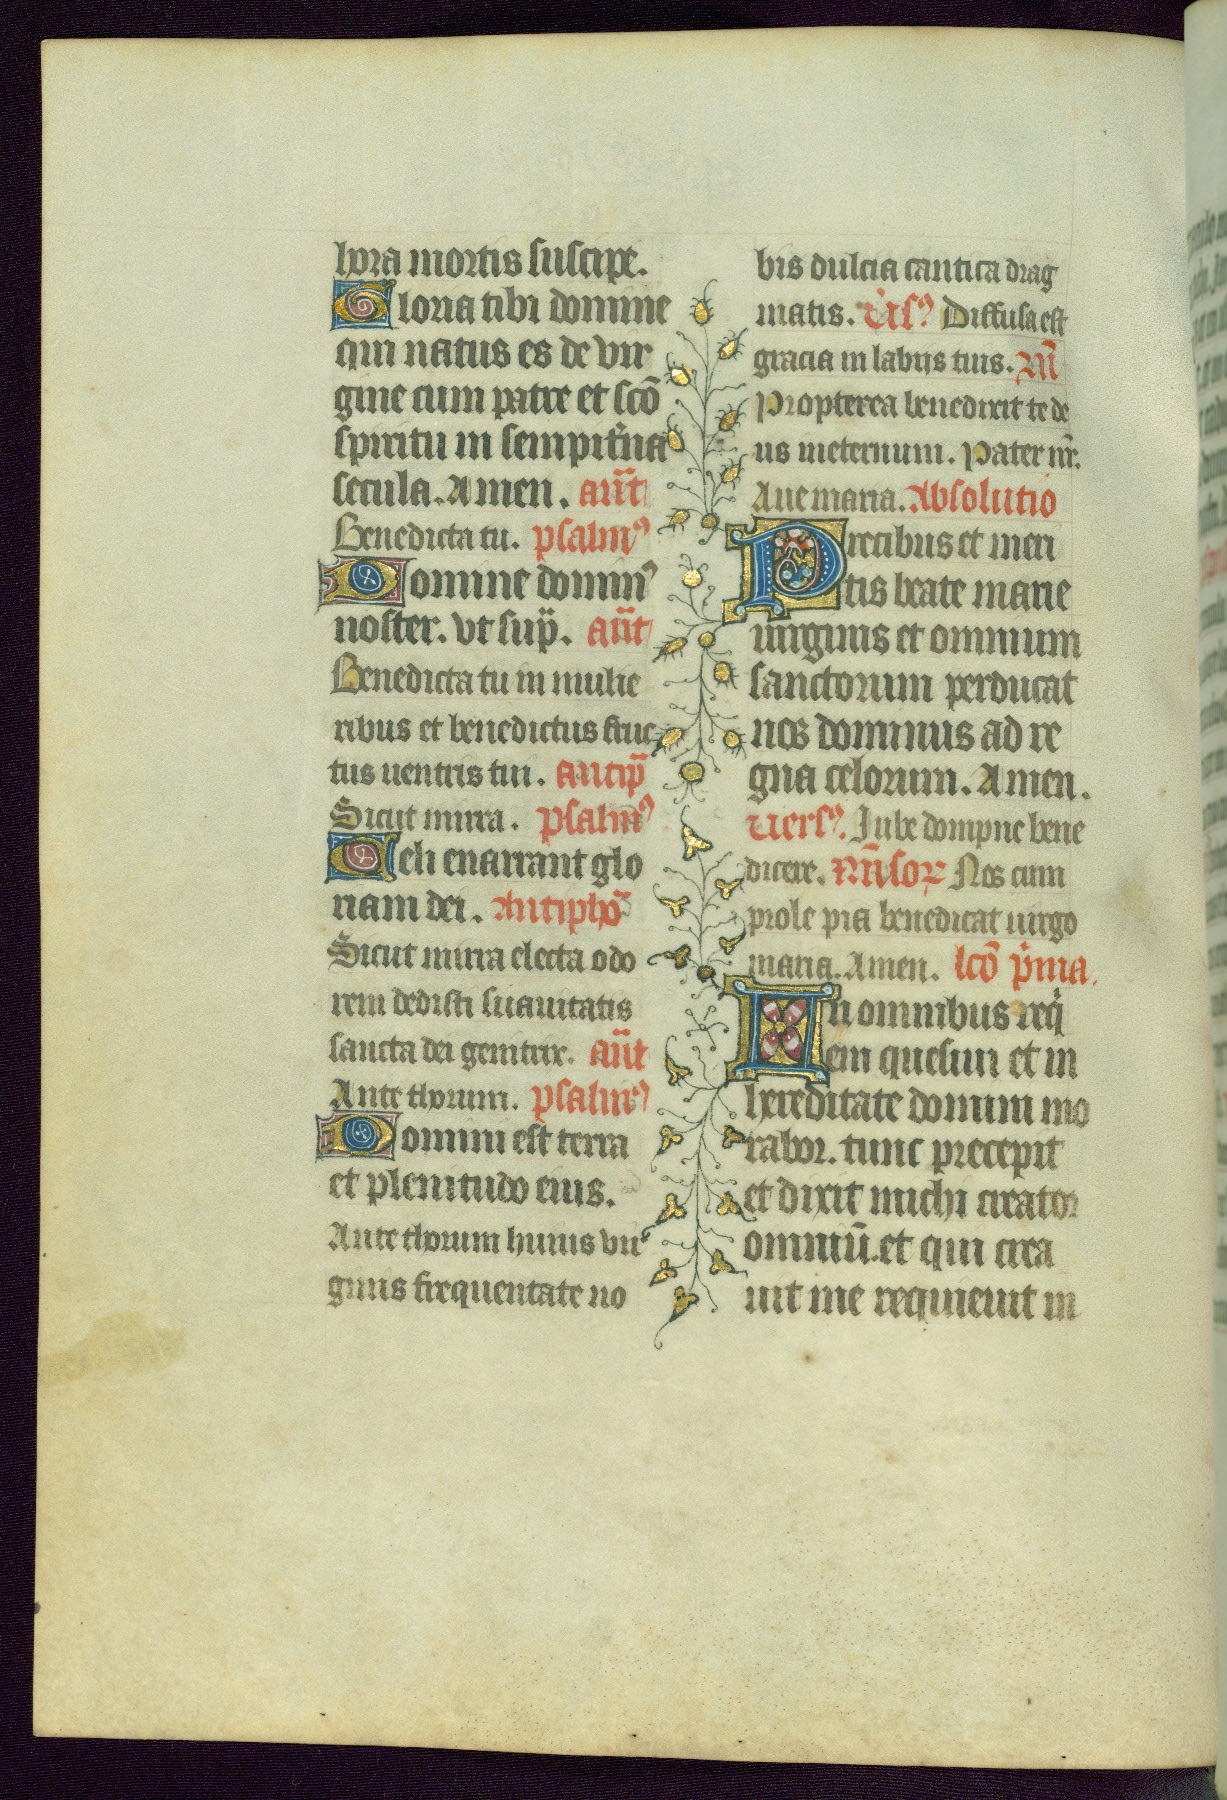 hora mortis suscipe.
Gloria tibi domine
qui natus es de vir
gine cum patre et scō
spiritu in sempit̄na
secula. Amen. an̄t
Benedicta tu. psalmꝰ
Domine dominꝰ
noster. vt sup̄. an̄t
Benedicta tu in mulie
ribus et benedictus fruc
tus uentris tui. antip̄
Sicut mirra. psalmꝰ
Celi enarrant glo
riam dei. Antipho᷑
Sicut mirra electa odo
rem dedisti suauitatis
sancta dei genitrix. an̄t
Ante thorum. psalmꝰ
Domini est terra
et plenitudo eius.
Ante thorum huius vir
ginis frequentate no
bis dulcia cantica drag
matis. v̓sꝰ Diffusa est
gracia in labijs tuis. R̄
Propterea benedixit te de
us ineternum. Pater nr̄.
Aue maria. Absolutio
Precibus et meri
tis beate marie
uirginis et omnium
sanctorum perducat
nos dominus ad re
gna celorum. Amen.
versꝰ. Iube dompne bene
dicere. Nos cum
prole pia benedicat uirgo
maria. Amen. lcō p̄ma.
In omnibus req̄
em quesiui et in
hereditate domini mo
rabor. tunc precepit
et dixit michi creator
omniū. et qui crea
uit me requieuit in